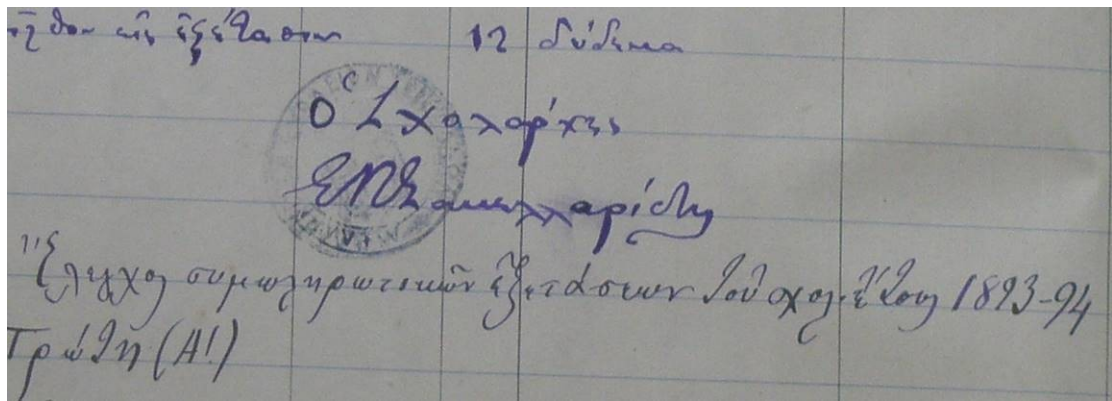 ἦλθον εἰς ἐξέτασιν 12 δώδεκα
Ὁ Σχολάρχης
Ε Π Σακελλαρίδης
Ἔλεγχος συμπληρωτικῶν ἐξετάσεων τοῦ σχολ. ἔτους 1893-94
Πρώτη (Α!)